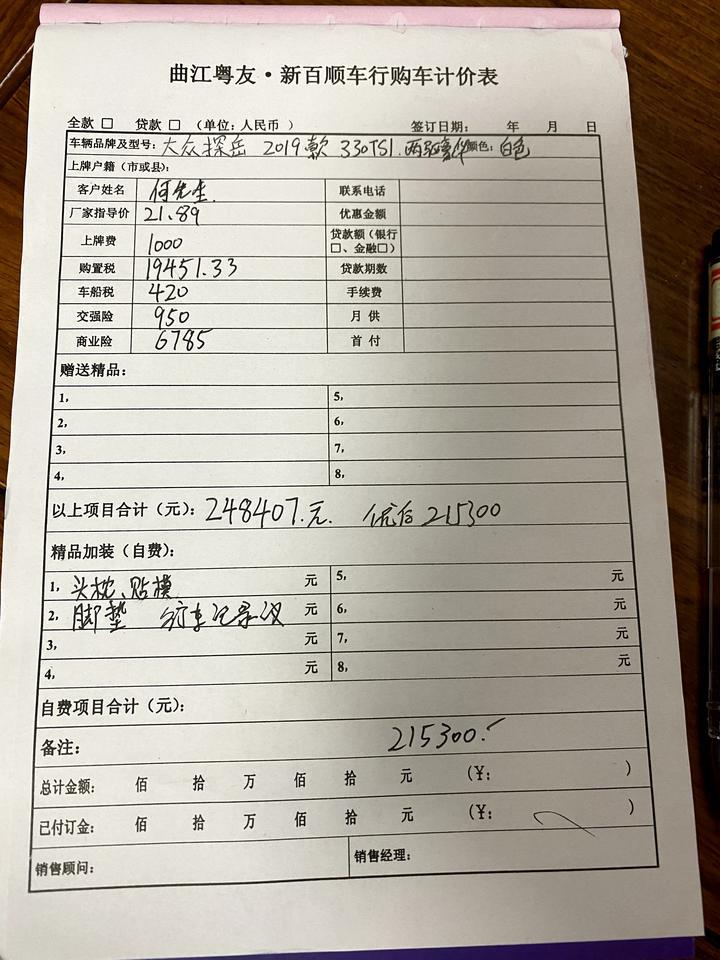 曲江粤友·新百顺车行购车计价表
全款 □ 贷款 □ （单位：人民币 ） 签订日期： 年 月 日
车辆品牌及型号：大众探岳 2019款 330TSI.两驱豪华 颜色：白色
上牌户籍（市或县）：
客户姓名 何先生. 联系电话
厂家指导价 21.89 优惠金额
上牌费 1000 贷款额（银行□、金融□）
购置税 19451.33 贷款期数
车船税 420 手续费
交强险 950 月 供
商业险 6785 首 付
赠送精品：
1， 5，
2， 6，
3， 7，
4， 8，
以上项目合计（元）：248407.元. 优后 215300
精品加装（自费）：
1，头枕、贴模 元 5， 元
2，脚垫 行车记录仪 元 6， 元
3， 元 7， 元
4， 元 8， 元
自费项目合计（元）：
备注： 215300.
总计金额： 佰 拾 万 佰 拾 元 （¥： ）
已付订金： 佰 拾 万 佰 拾 元 （¥： ）
销售顾问： 销售经理：